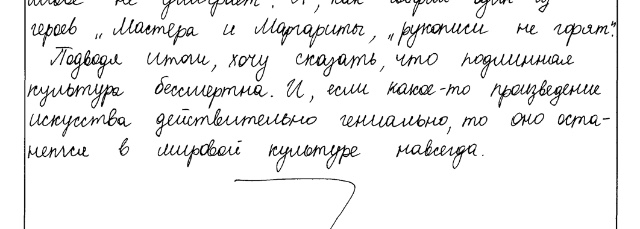 не умирает". И, как говорил один из
героев „Мастера и Маргариты, „рукописи не горят".
Подводя итоги, хочу сказать, что подлинная
культура бессмертна. И, если какое-то произведение
искусства действительно гениально, то оно оста-
нется в мировой культуре навсегда.